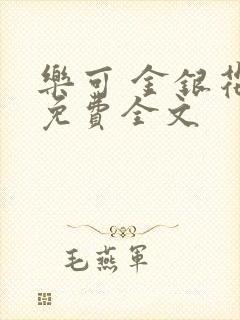 樂可 金銀花
免費全文
毛燕軍